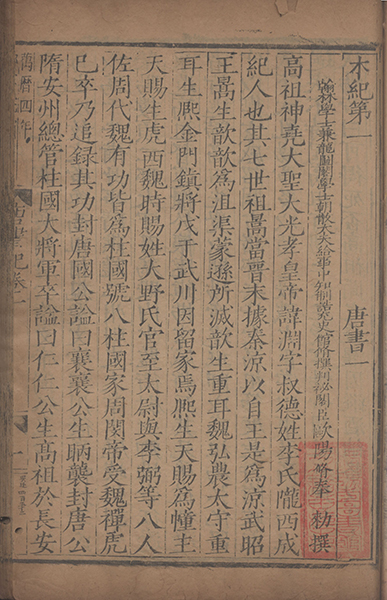 本紀第一
唐書一
翰林學士兼龍圖閣學士朝散大夫給事中知制誥充史館修撰判秘閣臣歐陽脩奉 勅撰
高祖神堯大聖大光孝皇帝諱淵字叔德姓李氏隴西成
紀人也其七世祖暠當晉末據秦涼以自王是爲涼武昭
王暠生歆歆爲沮渠蒙遜所滅歆生重耳魏弘農太守重
耳生熈金門鎮將戍于武川因留家焉熈生天賜爲幢主
天賜生虎西魏時賜姓大野氏官至太尉與李弼等八人
佐周代魏有功皆爲柱國號八柱國家周閔帝受魏禪虎
已卒乃追錄其功封唐國公謚曰襄襄公生昞襲封唐公
隋安州總管柱國大將軍卒謚曰仁仁公生高祖於長安
萬曆四年
唐書紀卷一
一